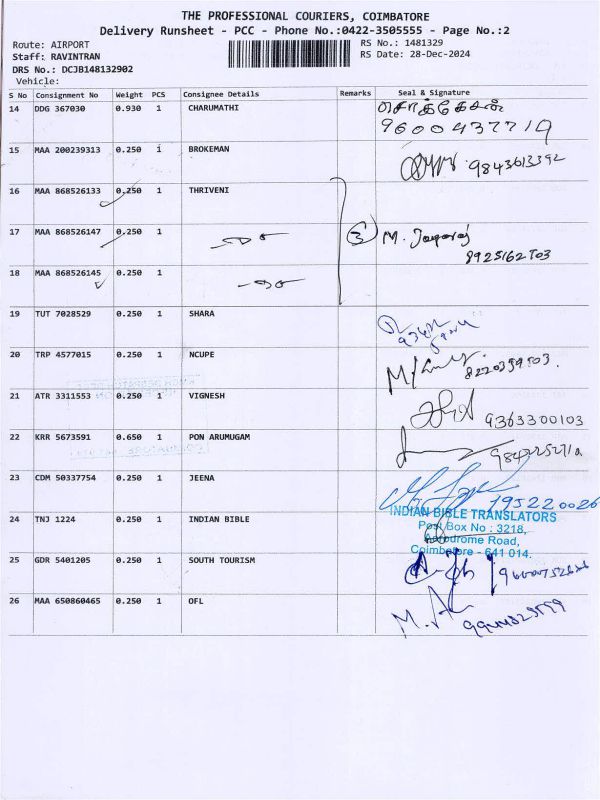 THE PROFESSIONAL COURIERS, COIMBATORE
Delivery Runsheet - PCC - Phone No.:0422-3505555 - Page No.:2
Route: AIRPORT RS No.: 1481329
Staff: RAVINTRAN RS Date: 28-Dec-2024
DRS No.: DCJB148132902
Vehicle:
S No Consignment No Weight PCS Consignee Details Remarks Seal & Signature
14 DDG 367030 0.930 1 CHARUMATHI
9600437719
15 MAA 200239313 0.250 1 BROKEMAN 9843613392
16 MAA 868526133 0.250 1 THRIVENI
17 MAA 868526147 0.250 1 3 M.
18 MAA 868526145 0.250 1
19 TUT 7028529 0.250 1 SHARA
20 TRP 4577015 0.250 1 NCUPE
21 ATR 3311553 0.250 1 VIGNESH 9363300103
22 KRR 5673591 0.650 1 PON ARUMUGAM
23 CDM 50337754 0.250 1 JEENA 195220026
24 TNJ 1224 0.250 1 INDIAN BIBLE
INDIAN BIBLE TRANSLATORS
Post Box No : 3218,
Aerodrome Road,
Coimbatore - 641 014.
25 GDR 5401205 0.250 1 SOUTH TOURISM
26 MAA 650860465 0.250 1 OFL